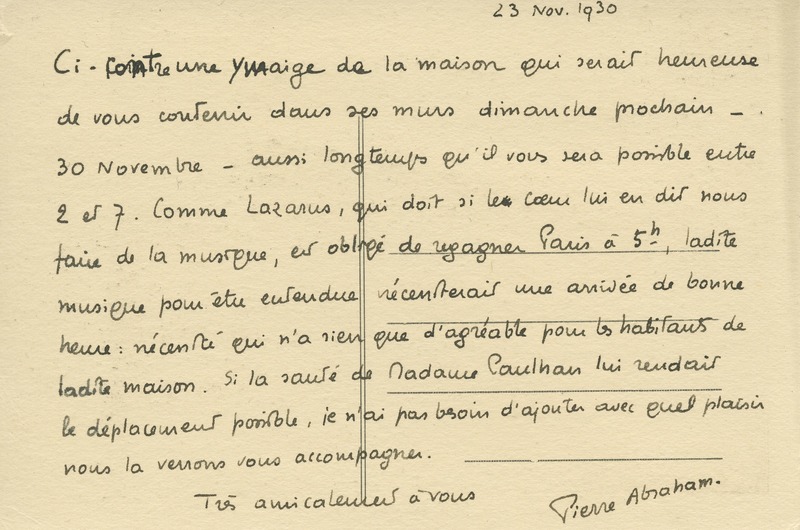 23 Nov. 1930
Ci-contre une ymaige de la maison qui serait heureuse
de vous contenir dans ses murs dimanche prochain –
30 Novembre – aussi longtemps qu'il vous sera possible entre
2 et 7. Comme Lazarus, qui doit si le cœur lui en dit nous
faire de la musique, est obligé de regagner Paris à 5h, ladite
musique pour être entendue nécessiterait une arrivée de bonne
heure : nécessité qui n'a rien que d'agréable pour les habitants de
ladite maison. Si la santé de Madame Paulhan lui rendait
le déplacement possible, je n'ai pas besoin d'ajouter avec quel plaisir
nous la verrons vous accompagner.
Très amicalement à vous
Pierre Abraham.